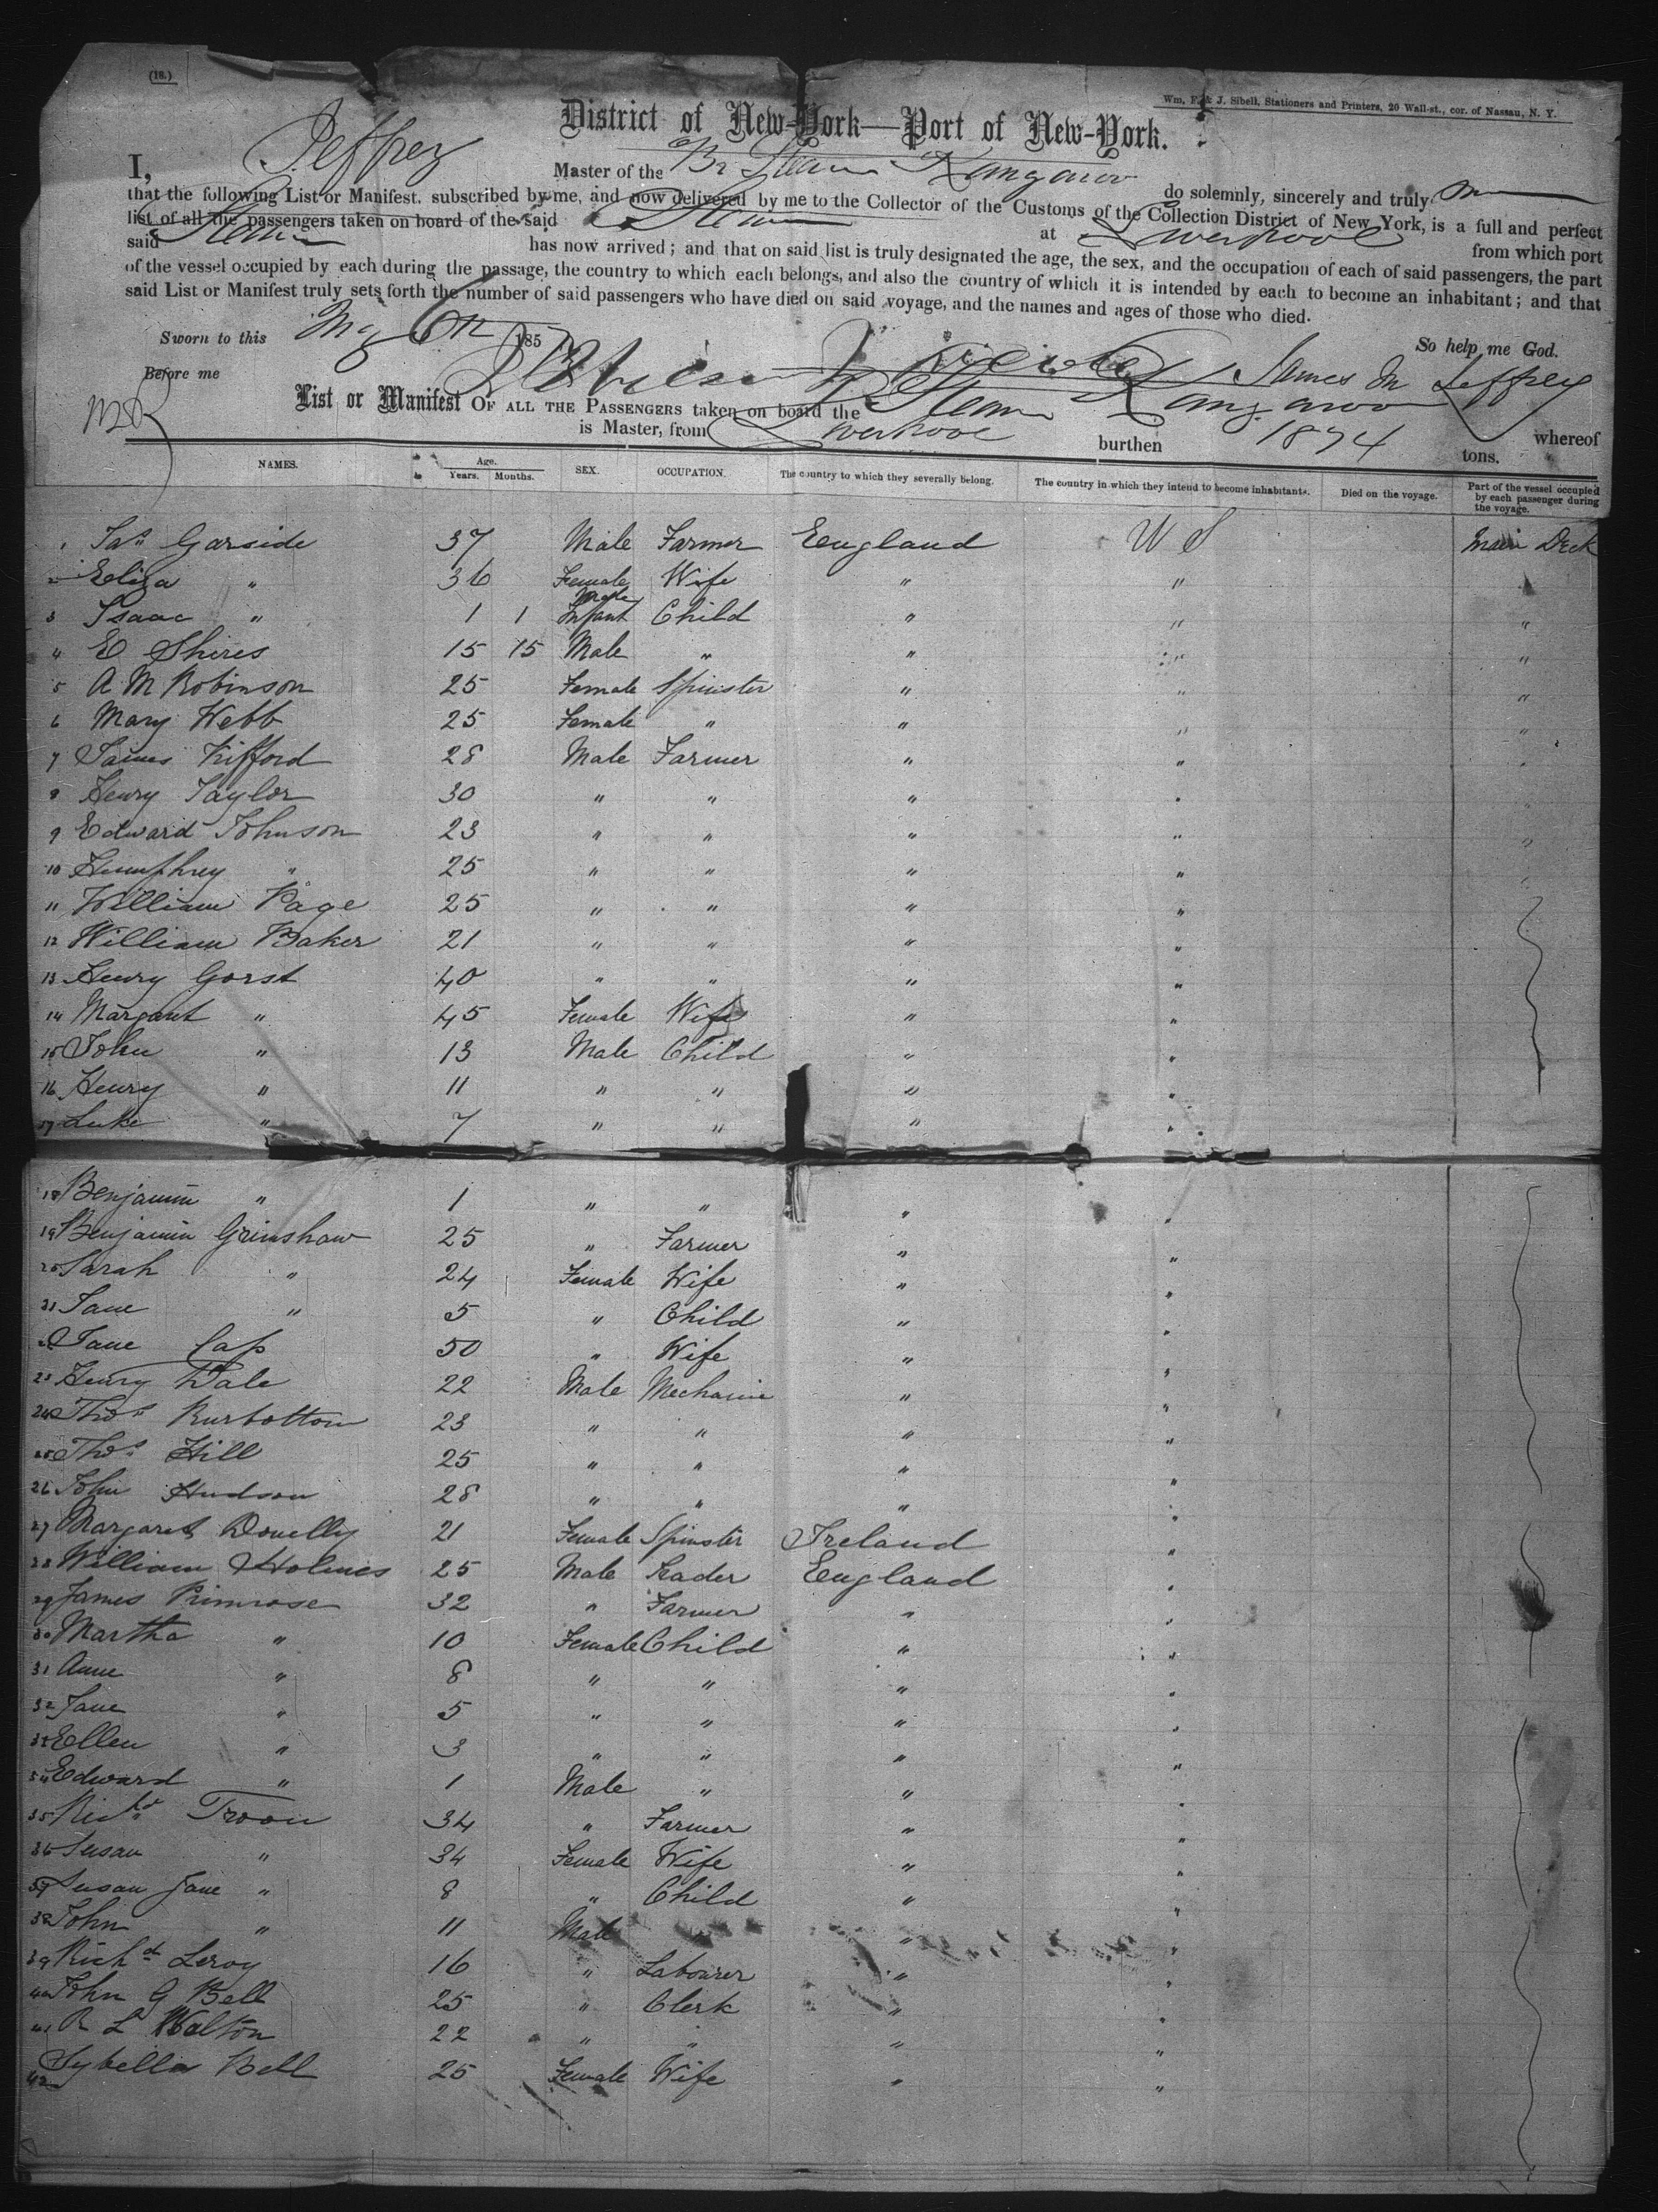 (18.)
Wm. F. & J. Sibell, Stationers and Printers, 20 Wall-st., cor. of Nassau, N. Y.
District of New-York—Port of New-York.
I, Jeffrey Master of the Br Steam Kangaroo do solemnly, sincerely and truly
that the following List or Manifest. subscribed by me, and now delivered by me to the Collector of the Customs of the Collection District of New York, is a full and perfect
list of all the passengers taken on board of the said Steam at Liverpool from which port
said Steam has now arrived; and that on said list is truly designated the age, the sex, and the occupation of each of said passengers, the part
of the vessel occupied by each during the passage, the country to which each belongs, and also the country of which it is intended by each to become an inhabitant; and that
said List or Manifest truly sets forth the number of said passengers who have died on said voyage, and the names and ages of those who died.
Sworn to this May 6th 185 So help me God.
Before me James M Jeffrey
List or Manifest OF ALL THE PASSENGERS taken on board the Steam Kangaroo whereof
is Master, from Liverpool burthen 1874 tons.
NAMES. Age. Years. Months. SEX. OCCUPATION. The country to which they severally belong. The country in which they intend to become inhabitants. Died on the voyage. Part of the vessel occupied by each passenger during the voyage.
1 Jas Garside 37 Male Farmer England U S Main Deck
2 Eliza " 36 Female Wife " " "
3 Isaac " 1 1 Male Infant Child " " "
4 E Shires 15 15 Male " " " "
5 A M Robinson 25 Female Spinster " " "
6 Mary Webb 25 Female " " " "
7 James Kifford 28 Male Farmer " " "
8 Henry Taylor 30 " " " " "
9 Edward Johnson 23 " " " " "
10 Humphrey " 25 " " " " "
11 William Page 25 " " " "
12 William Baker 21 " " " "
13 Henry Gorst 40 " " " "
14 Margaret " 45 Female Wife " "
15 John " 13 Male Child " "
16 Henry " 11 " " " "
17 Luke " 7 " " " "
18 Benjamin " 1 " " " "
19 Benjamin Grimshaw 25 " Farmer " "
20 Sarah " 24 Female Wife " "
21 Jane " 5 " Child " "
22 Jane 50 " Wife " "
23 Henry Dale 22 Male Mechanic " "
24 Thos 23 " " " "
25 Thos Hill 25 " " " "
26 John Hudson 28 " " " "
27 Margaret Donelly 21 Female Spinster Ireland "
28 William Holmes 25 Male England "
29 James Primrose 32 " Farmer " "
30 Martha " 10 Female Child " "
31 Anne " 8 " " " "
32 Jane " 5 " " " "
33 Ellen " 3 " " " "
34 Edward " 1 Male " " "
35 Richd Troon 34 " Farmer " "
36 Susan " 34 Female Wife " "
37 Susan Jane " 8 " Child " "
38 John " 11 Male " " "
39 Richd Leroy 16 " Labourer " "
40 John G Bell 25 " Clerk " "
41 R L Walton 22 " " " "
42 Sybella Bell 25 Female Wife " "